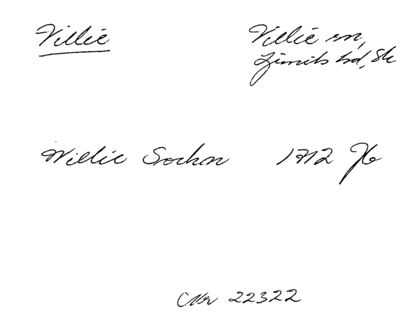 Villie
Villie sn,
Ljunits hd, Sk
Willie Sochn 1712 Jb
CNr 22322